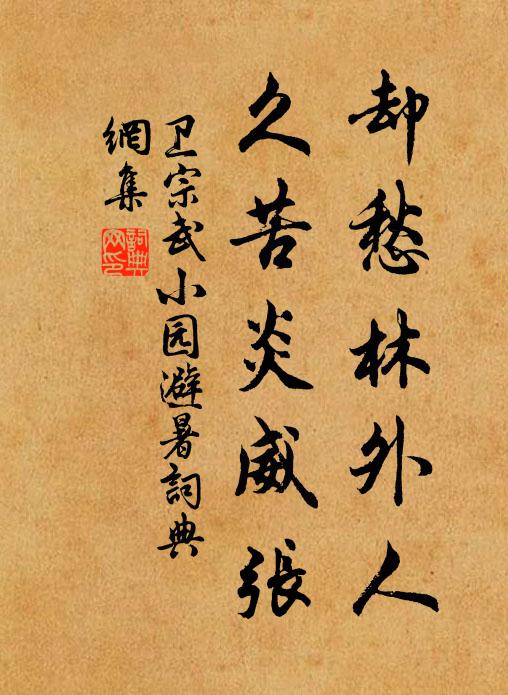 却愁林外人
久苦炎威張
卫宗武小园避暑詞典
網集
詞典網印